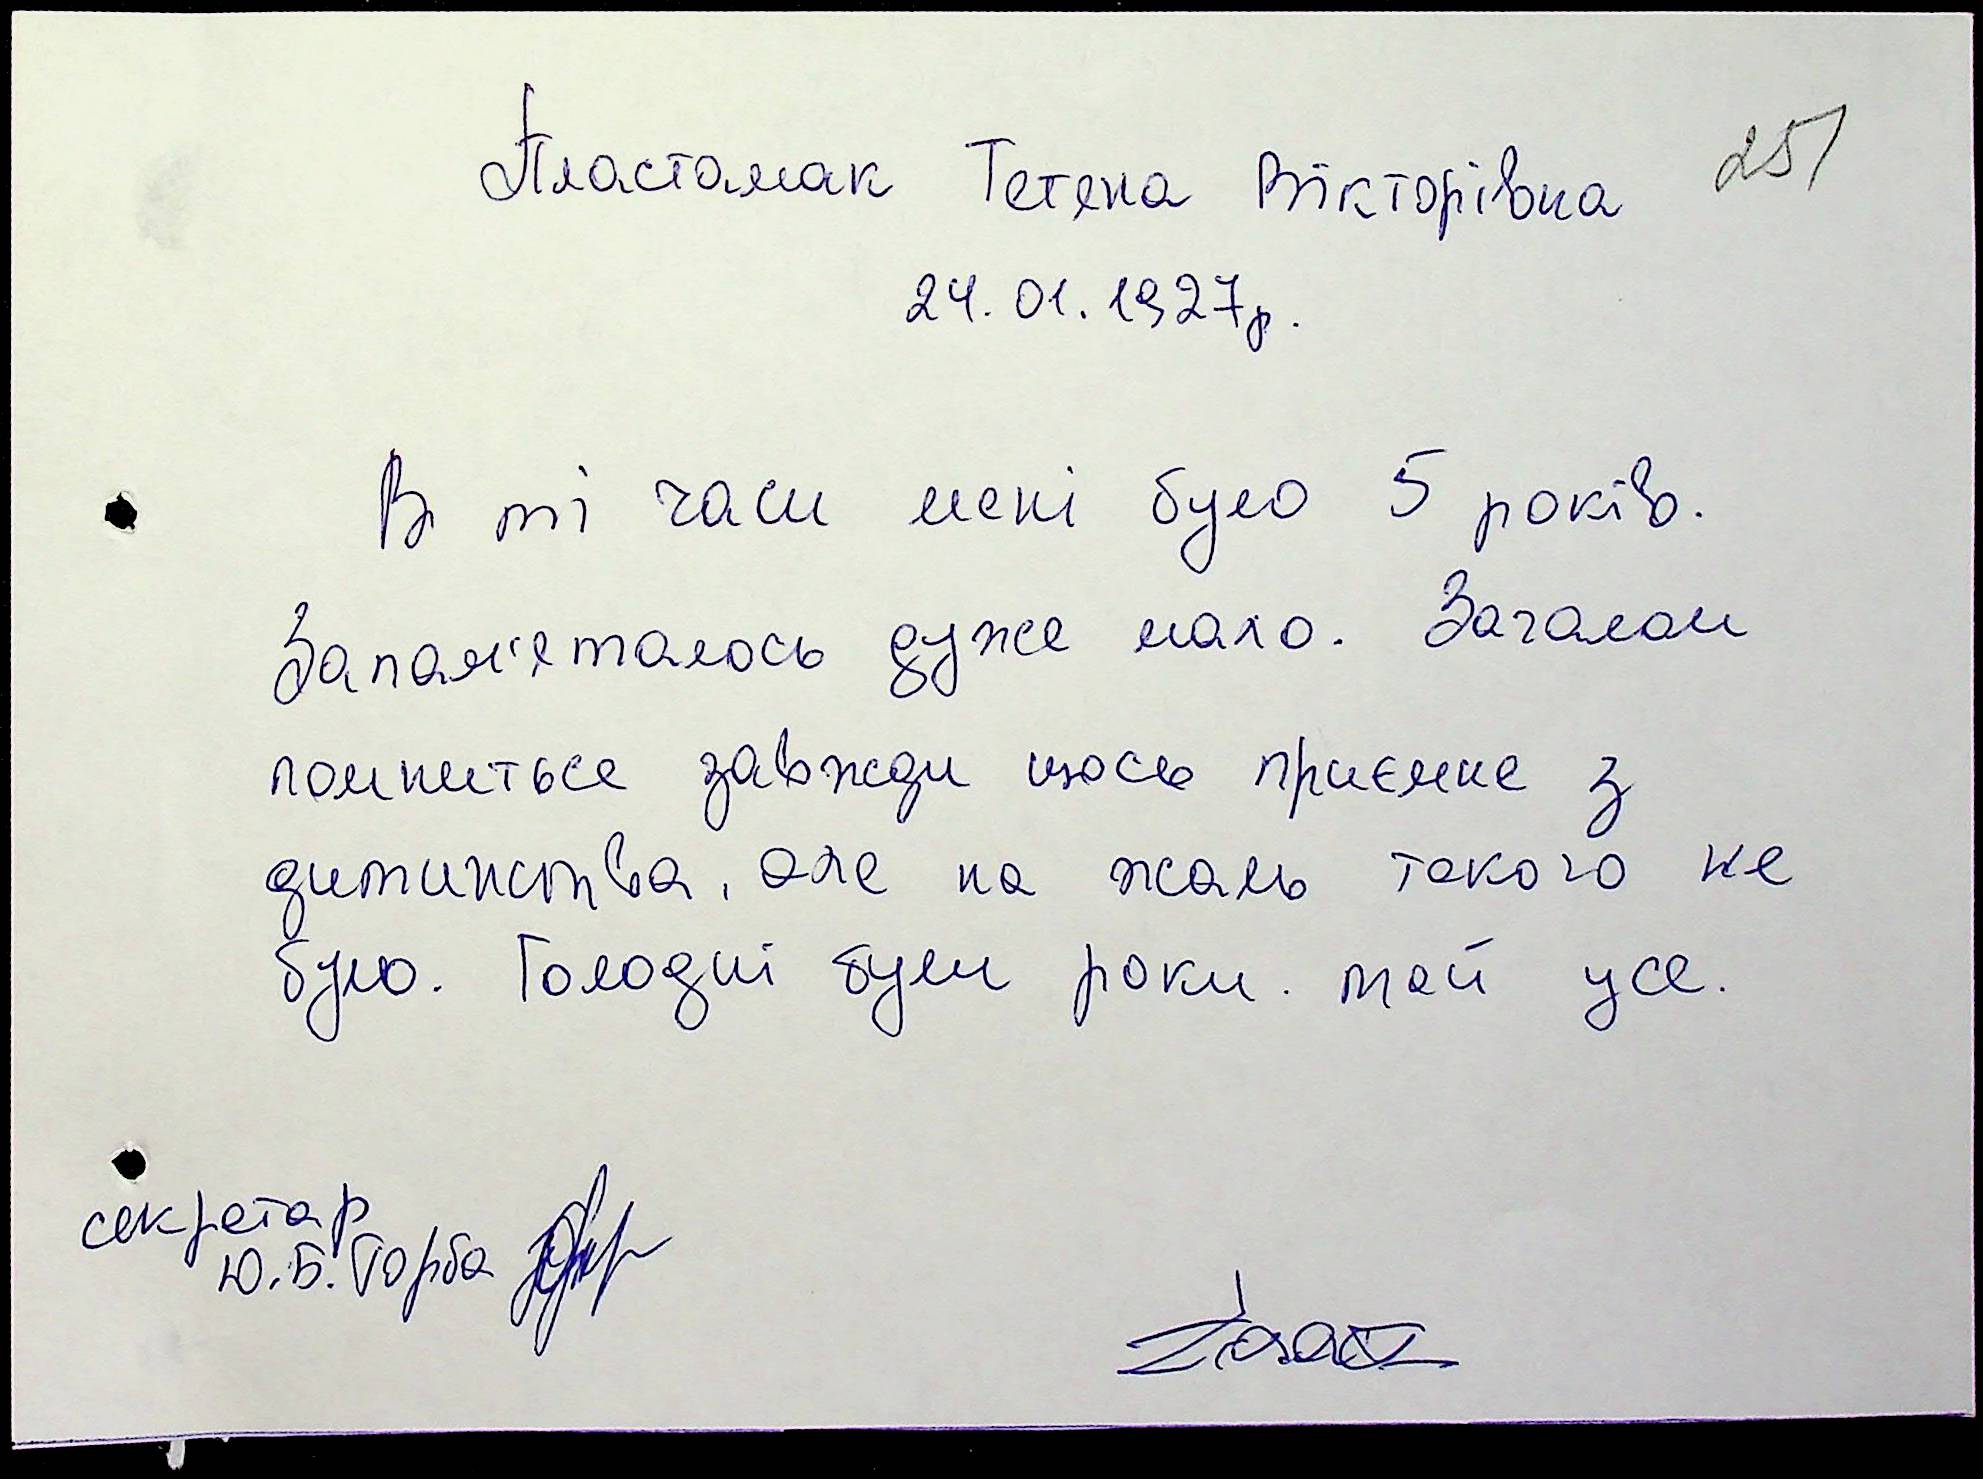 251
Пластамак Тетяна Вікторівна
24.01.1927р.
В ті часи мені було 5 років.
Запам'яталось дуже мало. Загалом
помниться завжди щось приємне з
дитинства, але на жаль такого не
було. Голодні були роки. тай усе.
секретар
Ю.Б. Горба